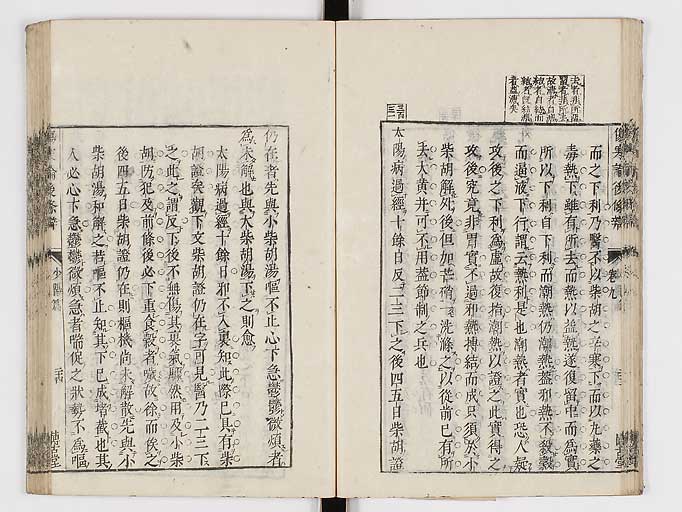 傷寒論後條辨
卷九
而之下利乃醫不以柴胡之辛寒下而以丸藥之
毒熱下雖有所去而熱以益熱遂復留中而為實
所以下利自下利而潮熱仍潮熱蓋邪熱不殺穀
而逼液下行謂云熱利是也潮熱者實也恐人疑
攻後之下利為虛故復指潮熱以證之此實得之
攻後究竟非胃實不過邪熱搏結而成只須於小
柴胡解死後但加芒硝一洗滌之以從前已有所
去大黃并可不用蓋節制之兵也
太陽病過經十餘日反二三下之後四五日柴胡證
仍在者先與小柴胡湯嘔不止心下急鬱鬱微煩者
為未解也與大柴胡湯下之則愈
太陽病過經十餘日邪不入裏知此際已具有柴
胡證矣觀下文柴胡證仍在字可見醫乃二三下
之此之謂反下後不無傷其裏氣驟然用及小柴
胡防犯及前條後必下重食穀者噦故徐而俟之
後四五日柴胡證仍在則樞機尚未解散先與小
柴胡湯和解之若嘔不止知其下已成堵截也其
人必心下急鬱鬱微煩急者喘促之狀勢不為嘔
少陽篇